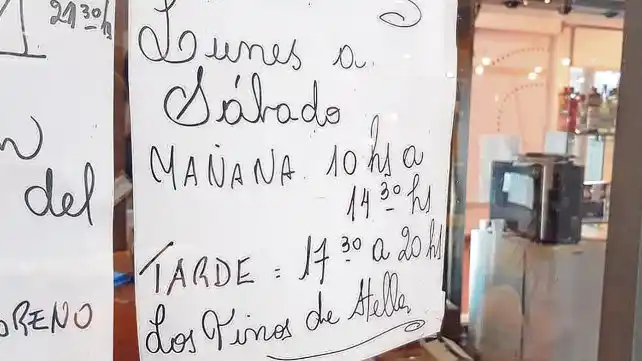 21 30 h
Lunes a
Sábado
MAÑANA 10 hs a
14 30 hs
TARDE = 17 30 a 20 hs
Los Vinos de Stella
del
ORENO